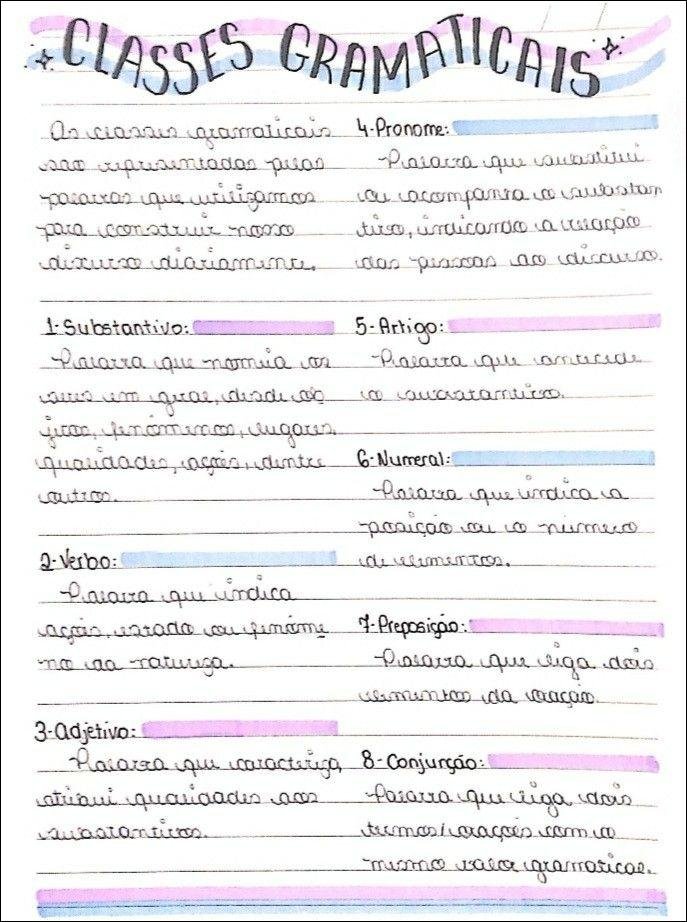 CLASSES GRAMATICAIS
As classes gramaticais
são representadas pelas
palavras que utilizamos
para construir nosso
discurso diariamente.
1-Substantivo:
Palavra que nomeia os
seres em geral, desde ob
jetos, fenômenos, lugares,
qualidades, ações, dentre
outros.
2-Verbo:
Palavra que indica
ações, estado ou fenôme
no da natureza.
3-Adjetivo:
Palavra que caracteriza,
atribui qualidades aos
substantivos.
4-Pronome:
Palavra que substitui
ou acompanha o substan
tivo, indicando a relação
das pessoas ao discurso.
5-Artigo:
Palavra que antecede
o substantivo.
6-Numeral:
Palavra que indica a
posição ou o número
de elementos.
7-Preposição:
Palavra que liga dois
elementos da oração.
8-Conjunção:
Palavra que liga dois
termos/orações com o
mesmo valor gramatical.